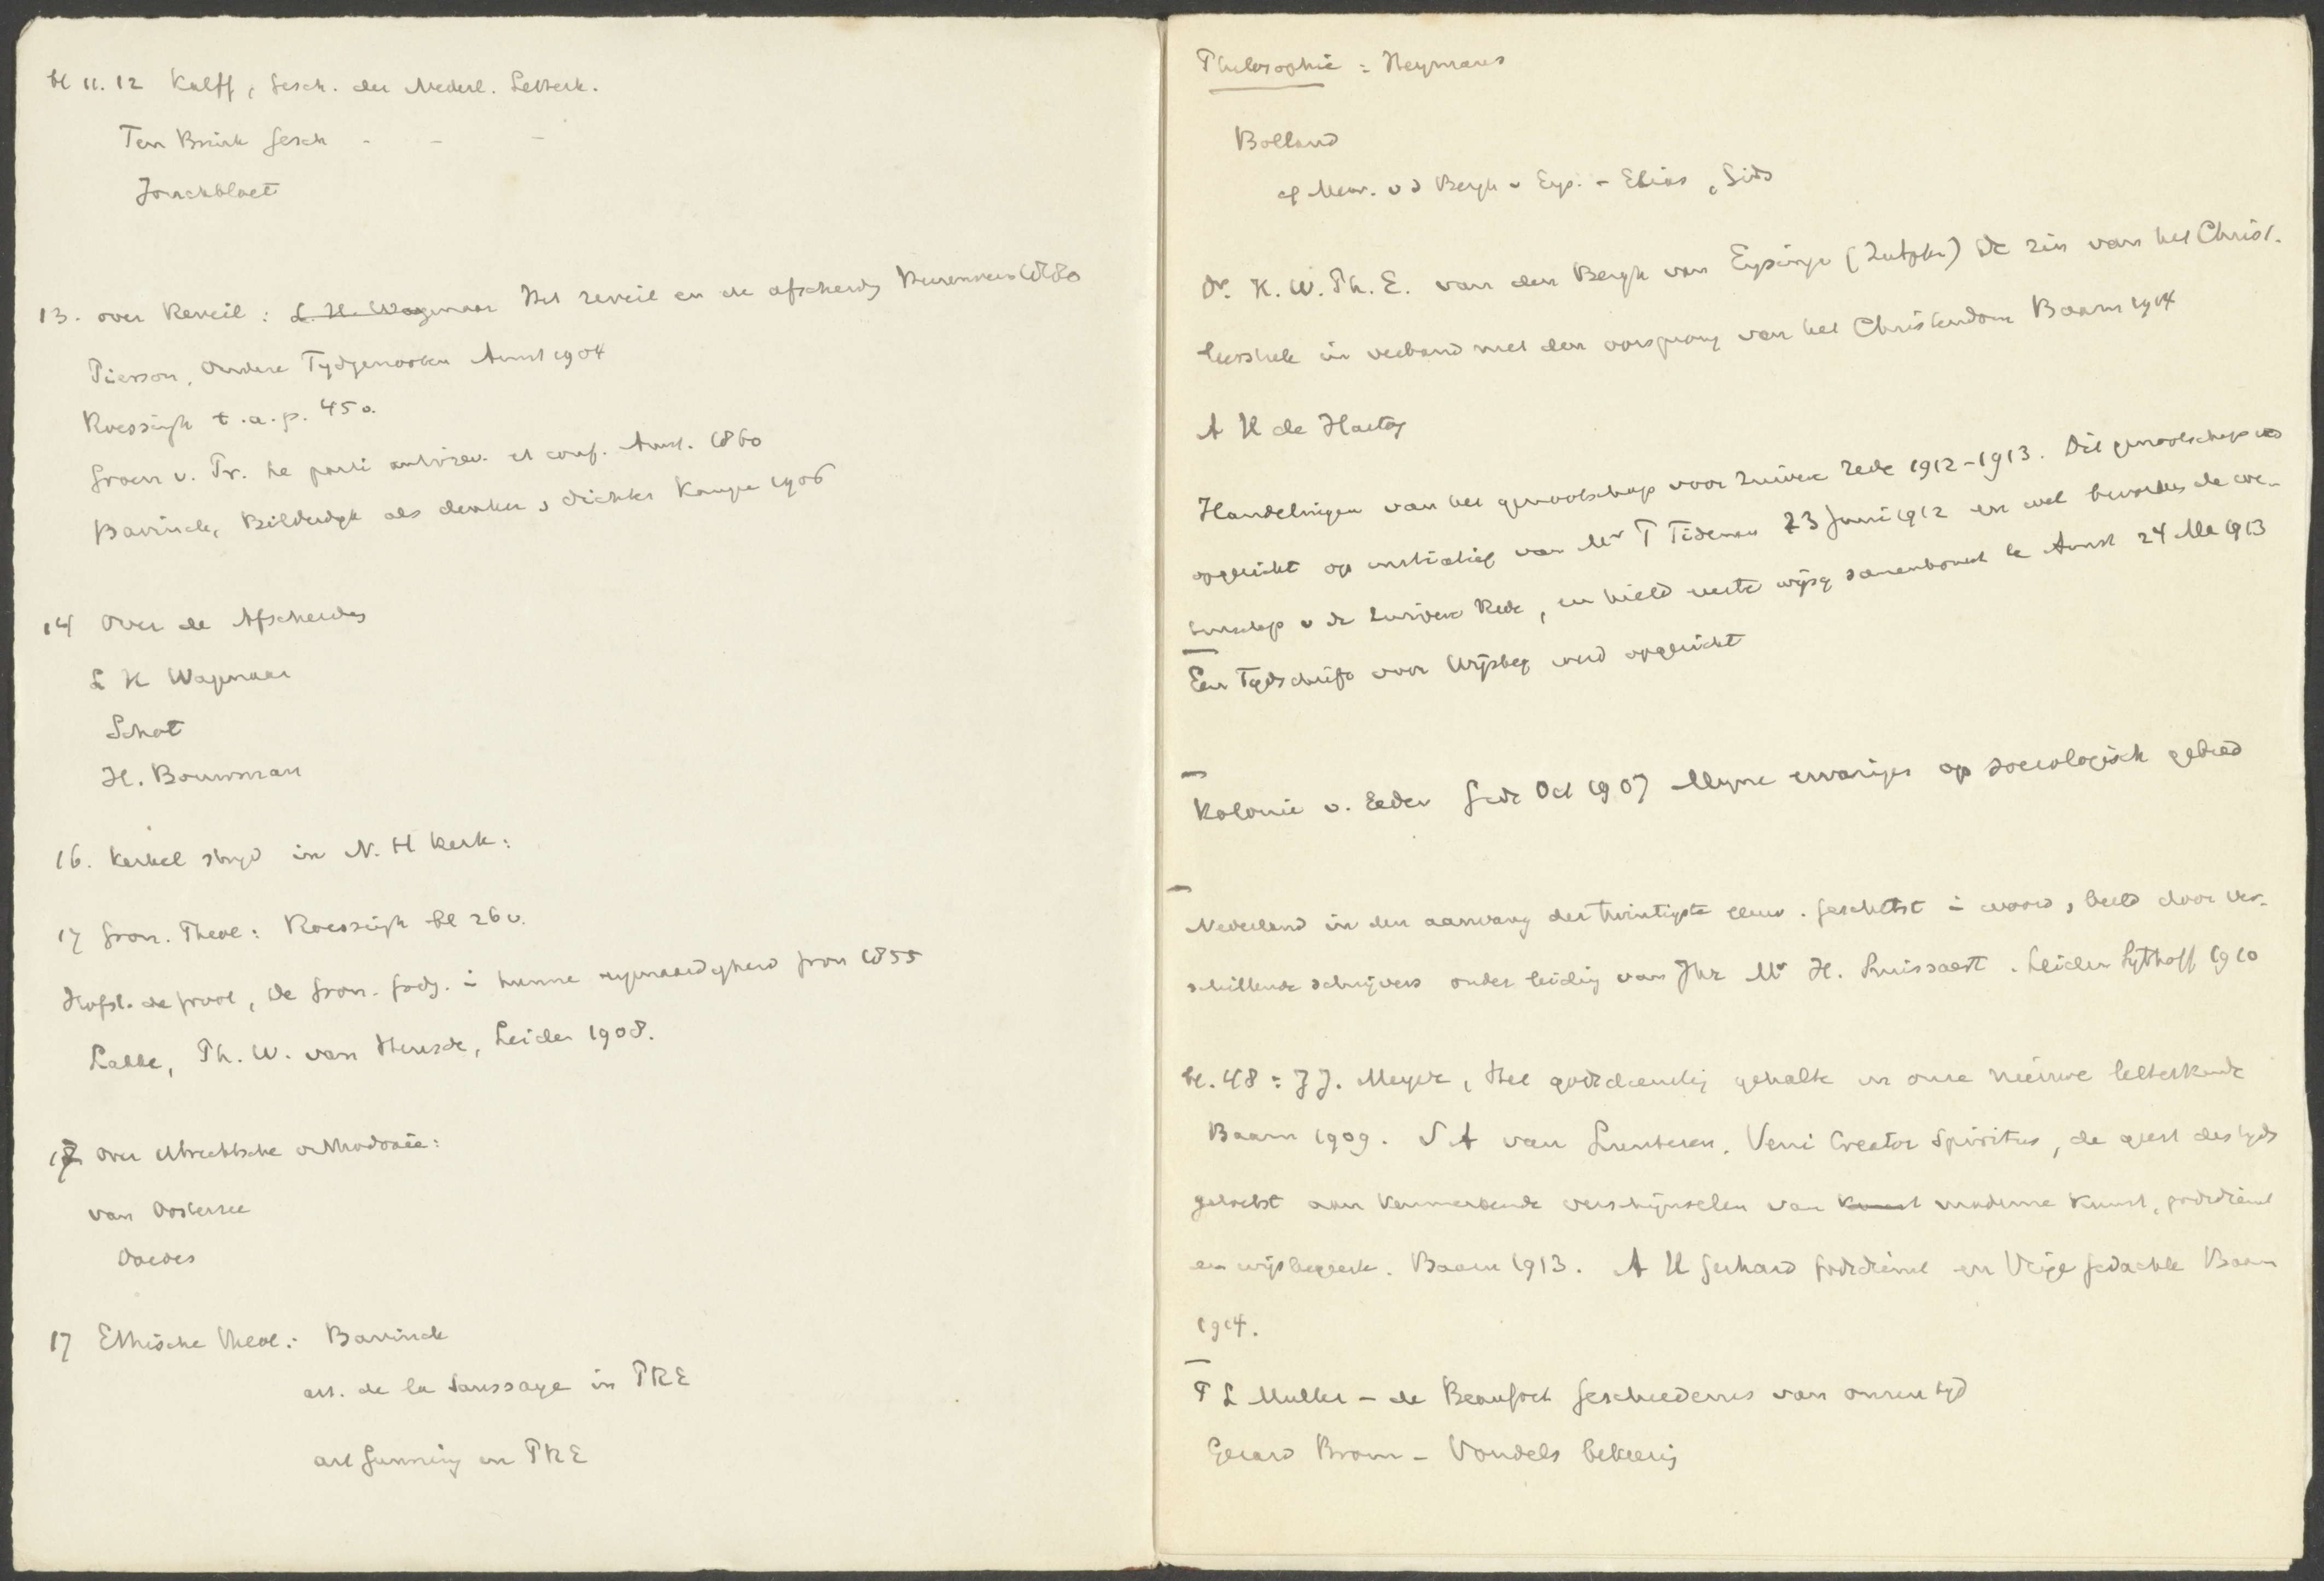 bl 11. 12 Kalff, Gesch. der Nederl. Letterk.
Ten Brink Gesch - - -
Jonckbloet
13. over Reveil: L. H. Wagenaar Het reveil en de afscheidg Heerenveen 1880
Pierson, Oudere Tydgenooten Amst 1904
Roessingh t.a.p. 45v.
Groen v. Pr. Le parti antirev. et conf. Amst. 1860
Bavinck, Bilderdyk als denker, dichter Kampen 1906
14 Over de Afscheidg
L H Wagenaar
Schot
H. Bouwman
16. Kerkel stryd in N. H Kerk:
17 Gron. Theol: Roessingh bl 26v.
Hofst. de Groot, De Gron. Godg. in hunne eigenaardigheid Gron 1855
Lakke, Ph. W. van Heusde, Leiden 1908.
17 over Utrechtsche orthodoxie:
van Oosterzee
Doedes
17 Ethische Theol: Bavinck
art. de la Saussaye in PRE
art Gunning in PRE
Philosophie: Heymans
Bolland
cf Mevr. v d Bergh v Eys. - Elias, Gids
Dr. H. W. Ph. E. van den Bergh van Eysinga (Zutphen) De zin van het Christ.
in verband met den oorsprong van het Christendom Baarn 1914
A H de Hartog
Handelingen van het genootschap voor zuivere Rede 1912-1913. Dit genootschap is
opgericht op initiatief van Mr T Tideman 23 Juni 1912 en wil bevorderen de we-
tenschap v de zuivere Rede, en hield eerste wijsg samenkomst te Amst 24 Me 1913
Een Tydschrift voor Wijsbeg werd opgericht
Kolonie v. Eeden Gids Oct 1907 Myne ervaringen op sociologisch gebied
Nederland in den aanvang der twintigste eeuw. geschetst in woord, beeld door ver-
schillende schrijvers onder leiding van Jhr Mr H. Smissaert. Leiden Sythoff 1910
bl. 48: J J. Meyer, Het godsdienstig gehalte in onze nieuwe letterkunde
Baarn 1909. J A van Lunteren, Veni Creator Spiritus, de geest des tyds
getoetst aan kenmerkende verschijnselen van kunst moderne kunst, godsdienst
en wijsbegeerte. Baarn 1913. A H Gerhard Godsdienst en Vrije Gedachte Baarn
1914.
P L Muller - de Beaufort Geschiedenis van onzen tyd
Gerard Brom - Vondels bekeering